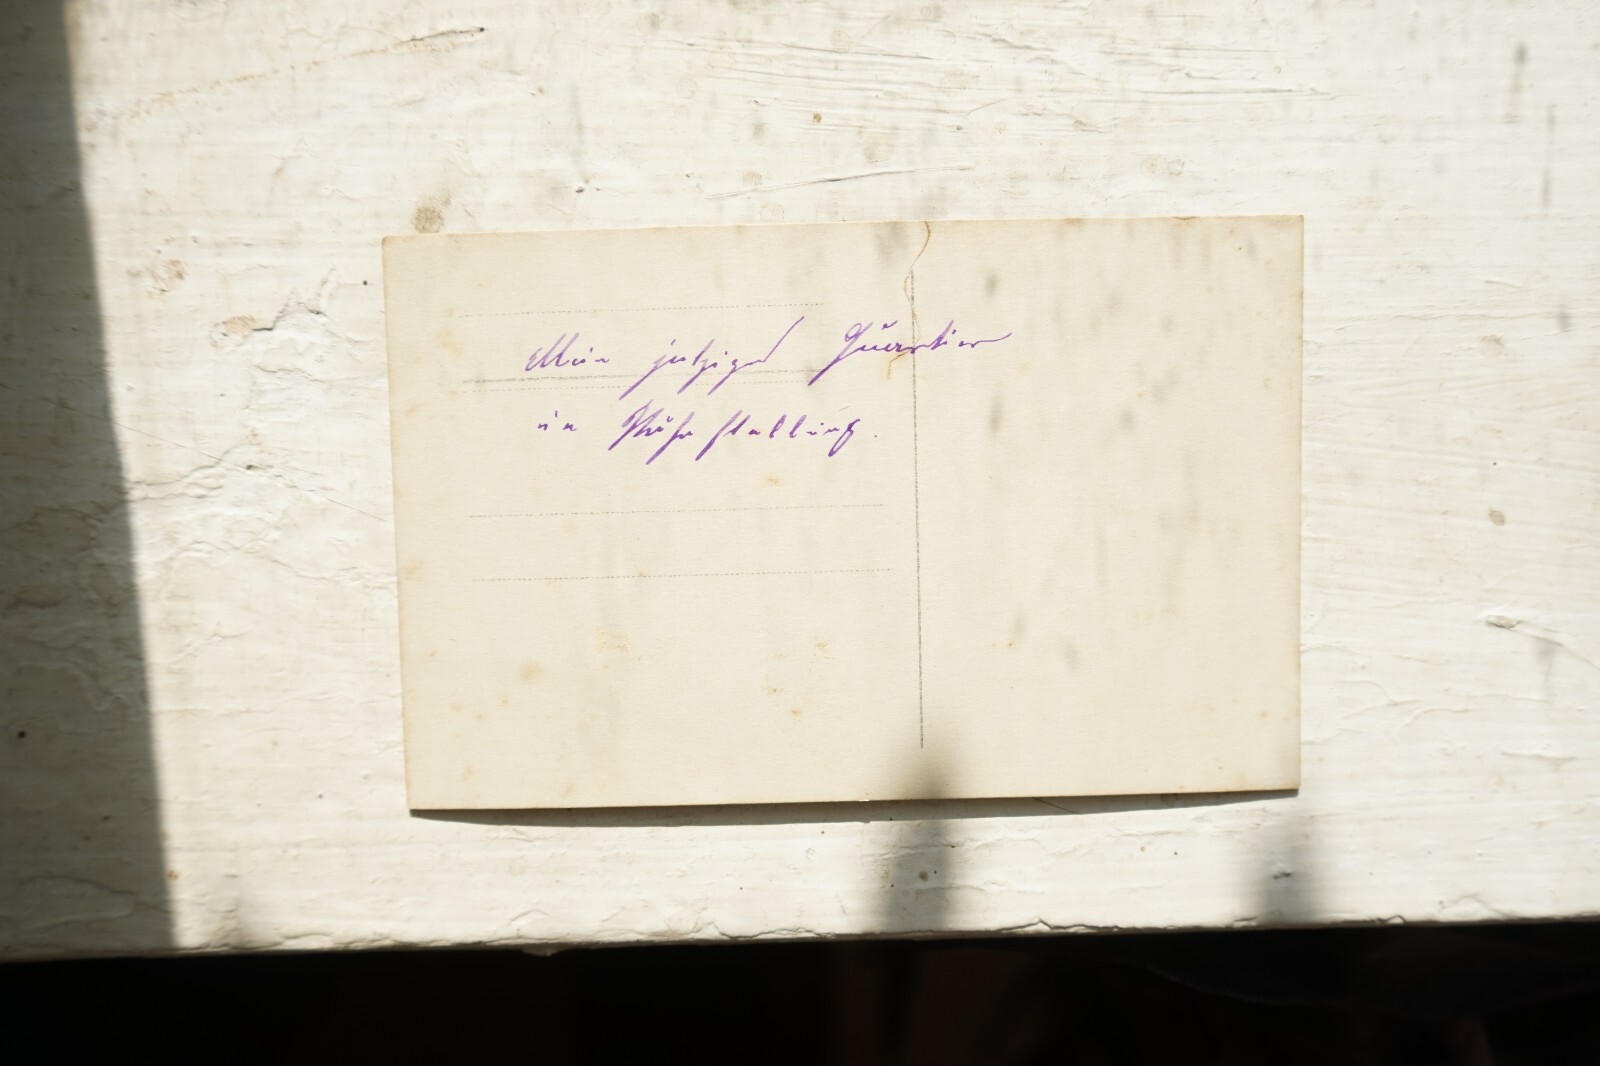 Mein jetziges Quartier
in Ruhestellung.